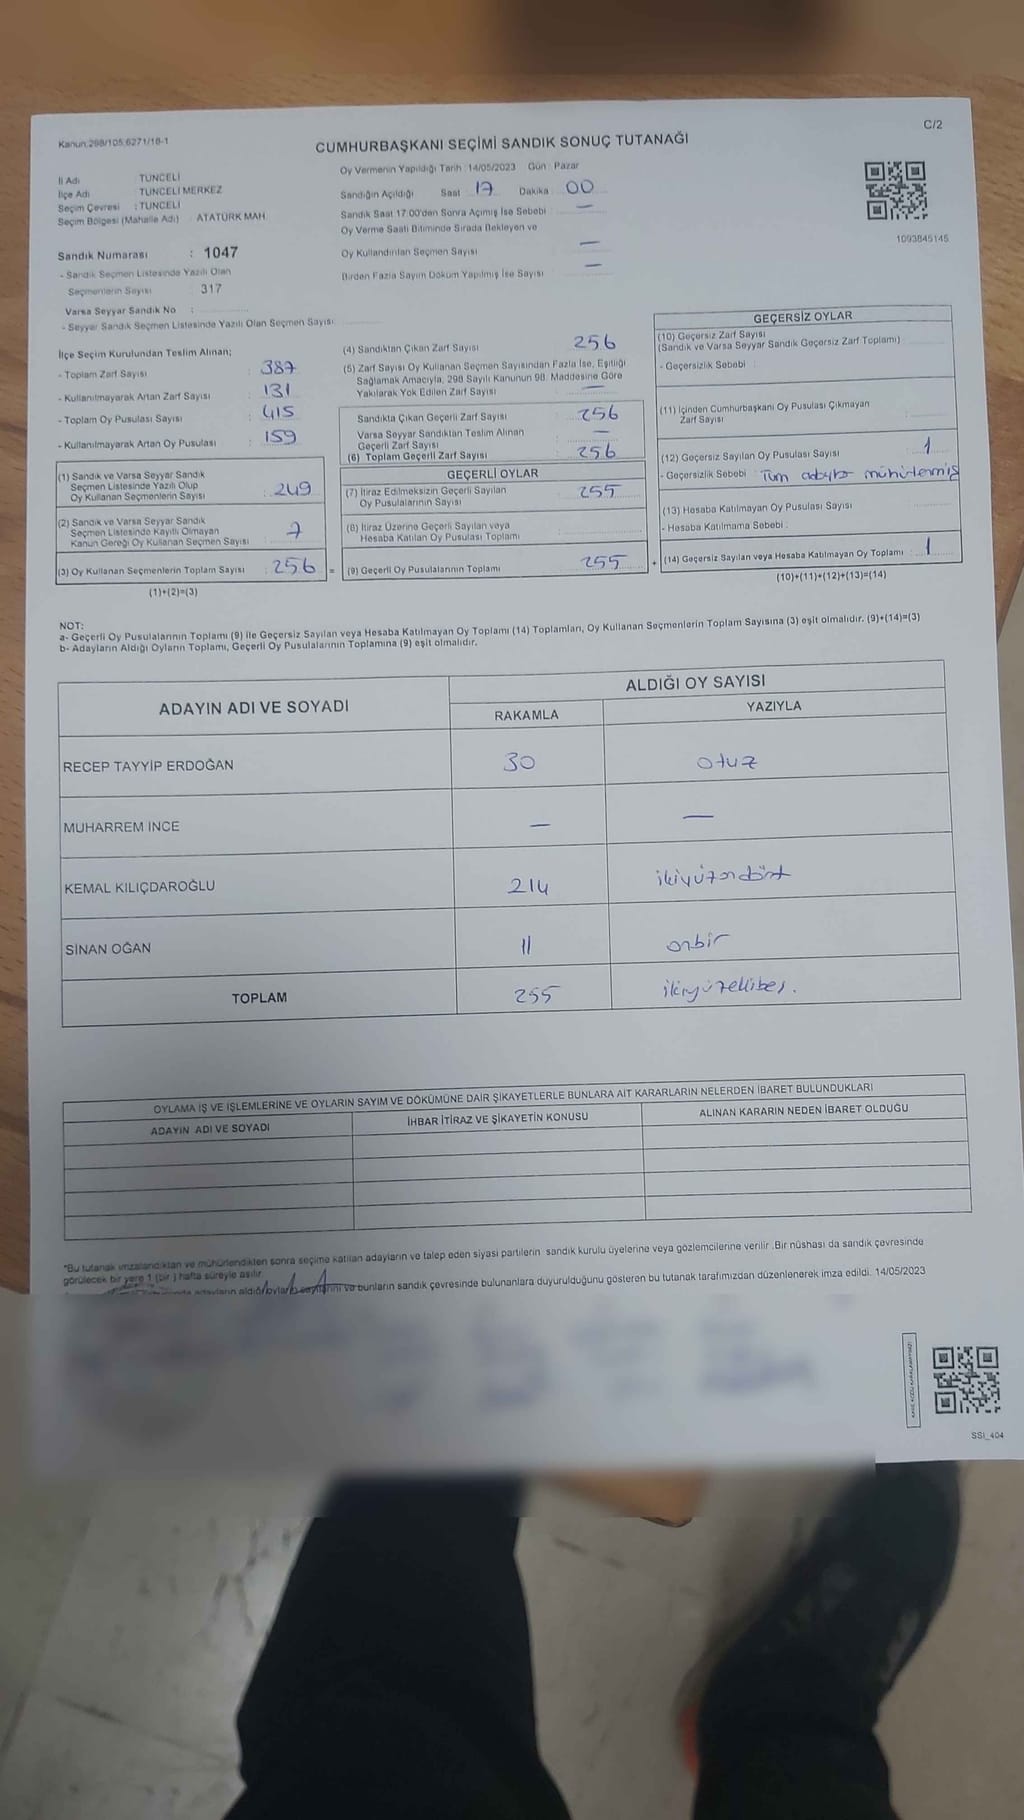 Kanun:298/105,6271/16-1
C/2
CUMHURBAŞKANI SEÇİMİ SANDIK SONUÇ TUTANAĞI
Oy Vermenin Yapıldığı Tarih : 14/05/2023 Gün : Pazar
İl Adı : TUNCELİ
İlçe Adı : TUNCELİ MERKEZ
Seçim Çevresi : TUNCELİ
Seçim Bölgesi (Mahalle Adı) : ATATÜRK MAH.
Sandığın Açıldığı Saat 17 Dakika 00
Sandık Saat 17.00'den Sonra Açılmış İse Sebebi : —
Oy Verme Saati Bitiminde Sırada Bekleyen ve
Oy Kullandırılan Seçmen Sayısı —
Birden Fazla Sayım Döküm Yapılmış İse Sayısı : —
1093845145
Sandık Numarası : 1047
- Sandık Seçmen Listesinde Yazılı Olan
Seçmenlerin Sayısı : 317
Varsa Seyyar Sandık No :
- Seyyar Sandık Seçmen Listesinde Yazılı Olan Seçmen Sayısı:
İlçe Seçim Kurulundan Teslim Alınan;
- Toplam Zarf Sayısı : 387
- Kullanılmayarak Artan Zarf Sayısı : 131
- Toplam Oy Pusulası Sayısı : 415
- Kullanılmayarak Artan Oy Pusulası : 159
(1) Sandık ve Varsa Seyyar Sandık
Seçmen Listesinde Yazılı Olup
Oy Kullanan Seçmenlerin Sayısı : 249
(2) Sandık ve Varsa Seyyar Sandık
Seçmen Listesinde Kayıtlı Olmayan
Kanun Gereği Oy Kullanan Seçmen Sayısı : 7
(3) Oy Kullanan Seçmenlerin Toplam Sayısı : 256 =
(1)+(2)=(3)
(4) Sandıktan Çıkan Zarf Sayısı : 256
(5) Zarf Sayısı Oy Kullanan Seçmen Sayısından Fazla İse, Eşitliği
Sağlamak Amacıyla, 298 Sayılı Kanunun 98. Maddesine Göre
Yakılarak Yok Edilen Zarf Sayısı : —
Sandıkta Çıkan Geçerli Zarf Sayısı : 256
Varsa Seyyar Sandıktan Teslim Alınan
Geçerli Zarf Sayısı : —
(6) Toplam Geçerli Zarf Sayısı : 256
GEÇERLİ OYLAR
(7) İtiraz Edilmeksizin Geçerli Sayılan
Oy Pusulalarının Sayısı : 255
(8) İtiraz Üzerine Geçerli Sayılan veya
Hesaba Katılan Oy Pusulası Toplamı :
(9) Geçerli Oy Pusulalarının Toplamı : 255 +
GEÇERSİZ OYLAR
(10) Geçersiz Zarf Sayısı
(Sandık ve Varsa Seyyar Sandık Geçersiz Zarf Toplamı) :
- Geçersizlik Sebebi :
(11) İçinden Cumhurbaşkanı Oy Pusulası Çıkmayan
Zarf Sayısı :
(12) Geçersiz Sayılan Oy Pusulası Sayısı : 1
- Geçersizlik Sebebi : Tüm adaylar mühürlenmiş
(13) Hesaba Katılmayan Oy Pusulası Sayısı :
- Hesaba Katılmama Sebebi :
(14) Geçersiz Sayılan veya Hesaba Katılmayan Oy Toplamı : 1
(10)+(11)+(12)+(13)=(14)
NOT:
a- Geçerli Oy Pusulalarının Toplamı (9) ile Geçersiz Sayılan veya Hesaba Katılmayan Oy Toplamı (14) Toplamları, Oy Kullanan Seçmenlerin Toplam Sayısına (3) eşit olmalıdır. (9)+(14)=(3)
b- Adayların Aldığı Oyların Toplamı, Geçerli Oy Pusulalarının Toplamına (9) eşit olmalıdır.
ADAYIN ADI VE SOYADI
ALDIĞI OY SAYISI
RAKAMLA YAZIYLA
RECEP TAYYİP ERDOĞAN 30 otuz
MUHARREM İNCE — —
KEMAL KILIÇDAROĞLU 214 ikiyüzondört
SİNAN OĞAN 11 onbir
TOPLAM 255 ikiyüzellibeş.
OYLAMA İŞ VE İŞLEMLERİNE VE OYLARIN SAYIM VE DÖKÜMÜNE DAİR ŞİKAYETLERLE BUNLARA AİT KARARLARIN NELERDEN İBARET BULUNDUKLARI
ADAYIN ADI VE SOYADI İHBAR İTİRAZ VE ŞİKAYETİN KONUSU ALINAN KARARIN NEDEN İBARET OLDUĞU
*Bu tutanak imzalandıktan ve mühürlendikten sonra seçime katılan adayların ve talep eden siyasi partilerin sandık kurulu üyelerine veya gözlemcilerine verilir .Bir nüshası da sandık çevresinde
görülecek bir yere 1 (bir ) hafta süreyle asılır.
adayların aldığı oyların sayılarını ve bunların sandık çevresinde bulunanlara duyurulduğunu gösteren bu tutanak tarafımızdan düzenlenerek imza edildi. 14/05/2023
SSI_404